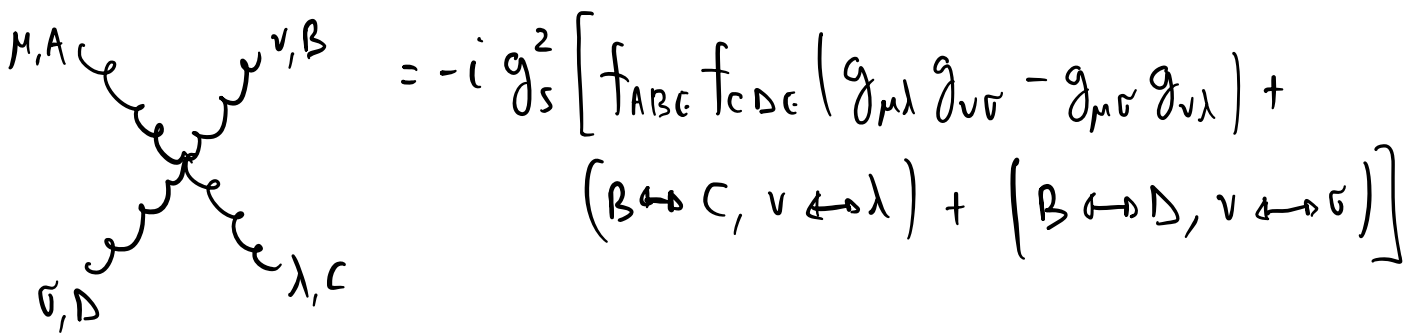 μ,A ν,B = -i g_s^2 [ f_{ABE} f_{CDE} ( g_{μλ} g_{νσ} - g_{μσ} g_{νλ} ) +
(B ↔ C, ν ↔ λ) + (B ↔ D, ν ↔ σ) ]
σ,D λ,C